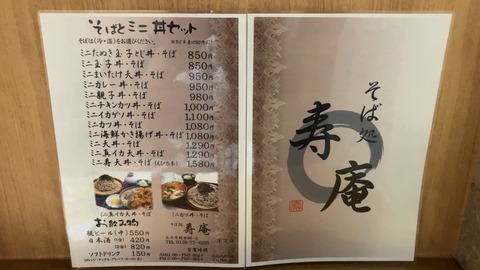 そばとミニ丼セット
そばは(冷・温)をお選びください。
ミニたぬき玉子とじ丼・そば 850円
ミニ玉子丼・そば 850円
ミニまいたけ天丼・そば 950円
ミニカレー丼・そば 950円
ミニ親子丼・そば 980円
ミニチキンカツ丼・そば 1,000円
ミニイカゲソ丼・そば 1,100円
ミニカツ丼・そば 1,080円
ミニ海鮮かき揚げ丼・そば 1,080円
ミニ天丼・そば 1,290円
ミニ真イカ天丼・そば 1,290円
ミニ寿天丼・そば 1,580円
ミニ真イカ天丼・そば
ミニカツ丼・そば
お飲み物
瓶ビール(中) 550円
日本酒 (1合) 420円
(2合) 820円
ソフトドリンク 150円
そば処
寿庵
営業時間
そば処
寿庵